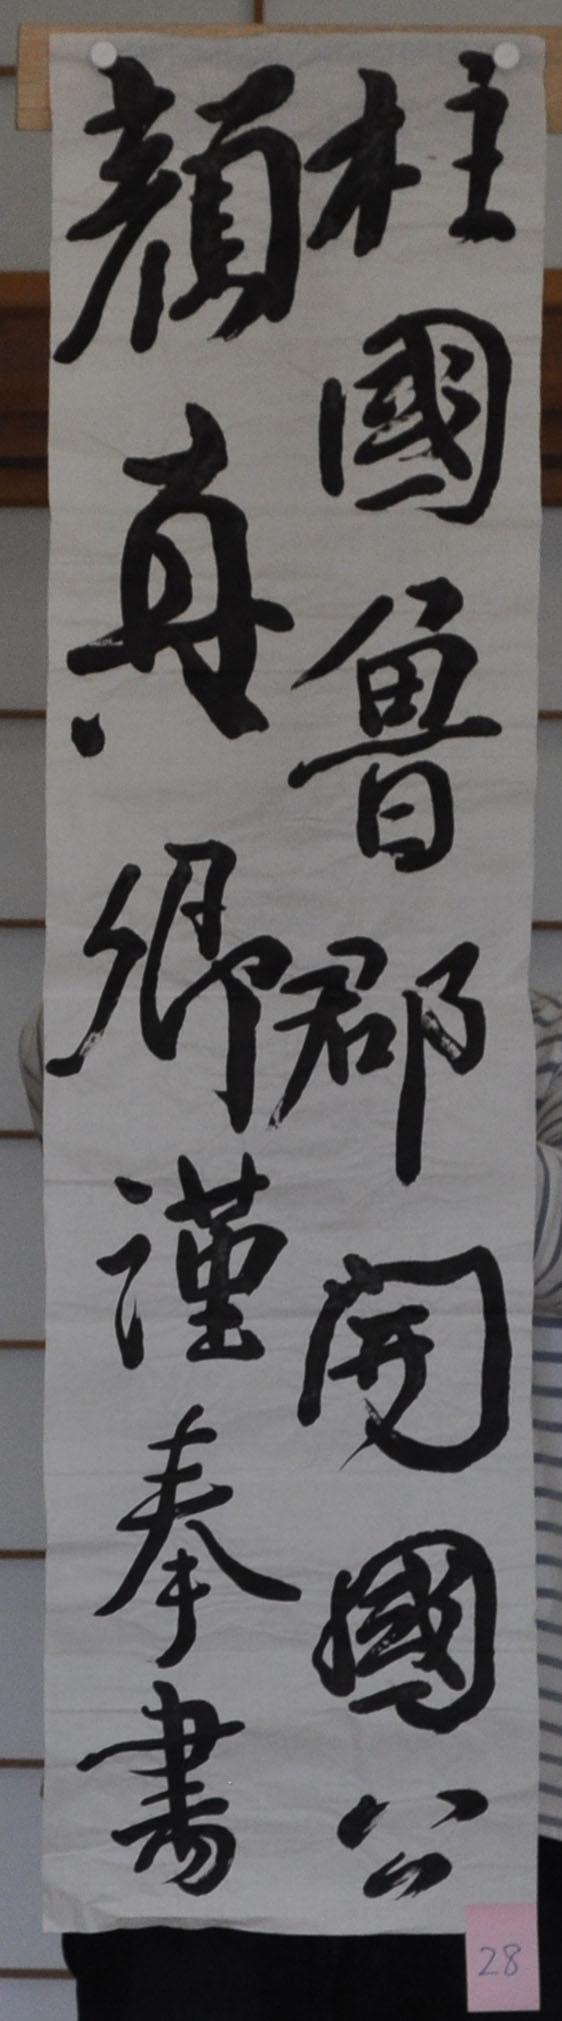 柱國魯郡開國公
顔真卿謹奉書
28